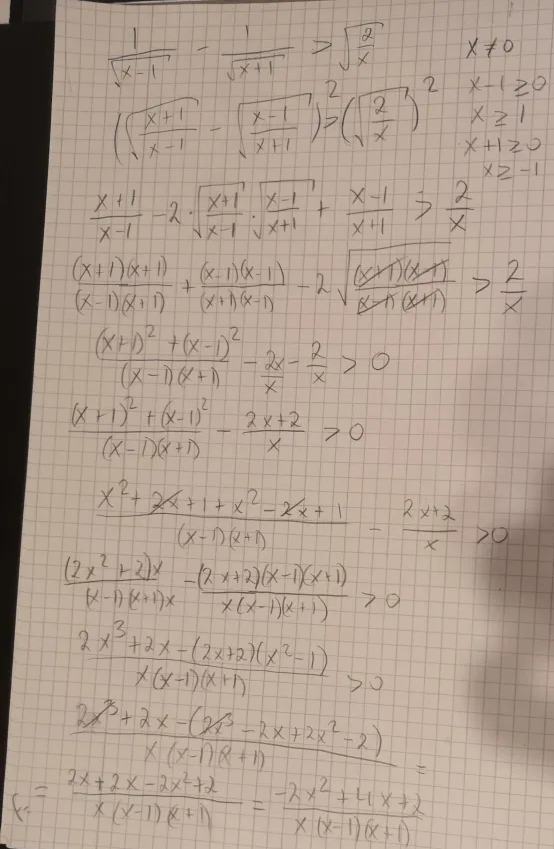 1/√(x-1) - 1/√(x+1) > √(2/x)    x ≠ 0
(√((x+1)/(x-1)) - √((x-1)/(x+1)))² > (√(2/x))²    x-1 ≥ 0
x ≥ 1
x+1 ≥ 0
x ≥ -1
(x+1)/(x-1) - 2·√((x+1)/(x-1))·√((x-1)/(x+1)) + (x-1)/(x+1) > 2/x
(x+1)(x+1)/((x-1)(x+1)) + (x-1)(x-1)/((x+1)(x-1)) - 2√((x+1)(x-1)/((x-1)(x+1))) > 2/x
((x+1)²+(x-1)²)/((x-1)(x+1)) - 2x/x - 2/x > 0
((x+1)²+(x-1)²)/((x-1)(x+1)) - (2x+2)/x > 0
(x²+2x+1+x²-2x+1)/((x-1)(x+1)) - (2x+2)/x > 0
(2x²+2)x/((x-1)(x+1)x) - (2x+2)(x-1)(x+1)/(x(x-1)(x+1)) > 0
(2x³+2x-(2x+2)(x²-1))/(x(x-1)(x+1)) > 0
(2x³+2x-(2x³-2x+2x²-2))/(x(x-1)(x+1)) =
= (2x+2x-2x²+2)/(x(x-1)(x+1)) = (-2x²+4x+2)/(x(x-1)(x+1))